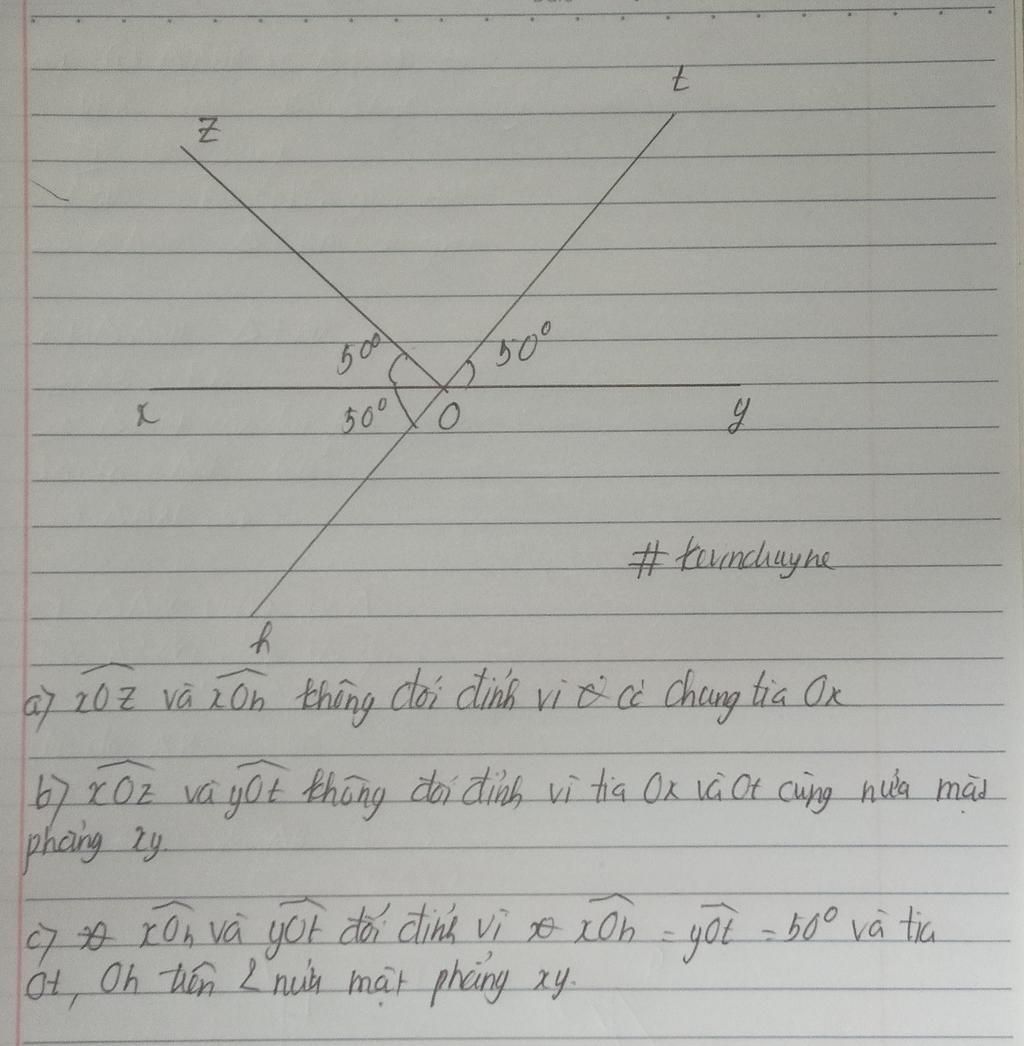 z
t
50°
50°
x
50°
O
y
# kevinchuyne
h
a) xOz và xOh không đối đỉnh vì có chung tia Ox
b) xOz và yOt không đối đỉnh vì tia Ox và Ot cùng nửa mặt
phẳng xy.
c) xOh và yOt đối đỉnh vì xOh = yOt = 50° và tia
Ot, Oh trên 2 nửa mặt phẳng xy.